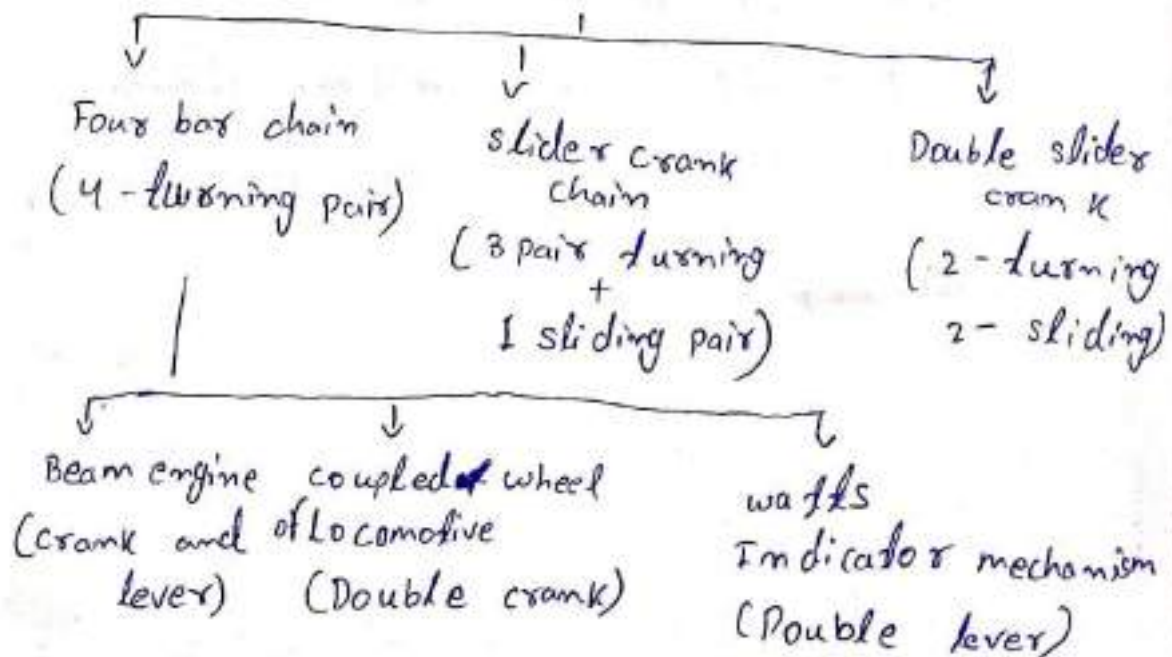 Four bar chain
(4-turning pair)
slider crank
chain
(3 pair turning
+
1 sliding pair)
Double slider
crank
(2-turning
2-sliding)
Beam engine
(crank and
lever)
coupled wheel
of Locomotive
(Double crank)
watts
Indicator mechanism
(Double lever)